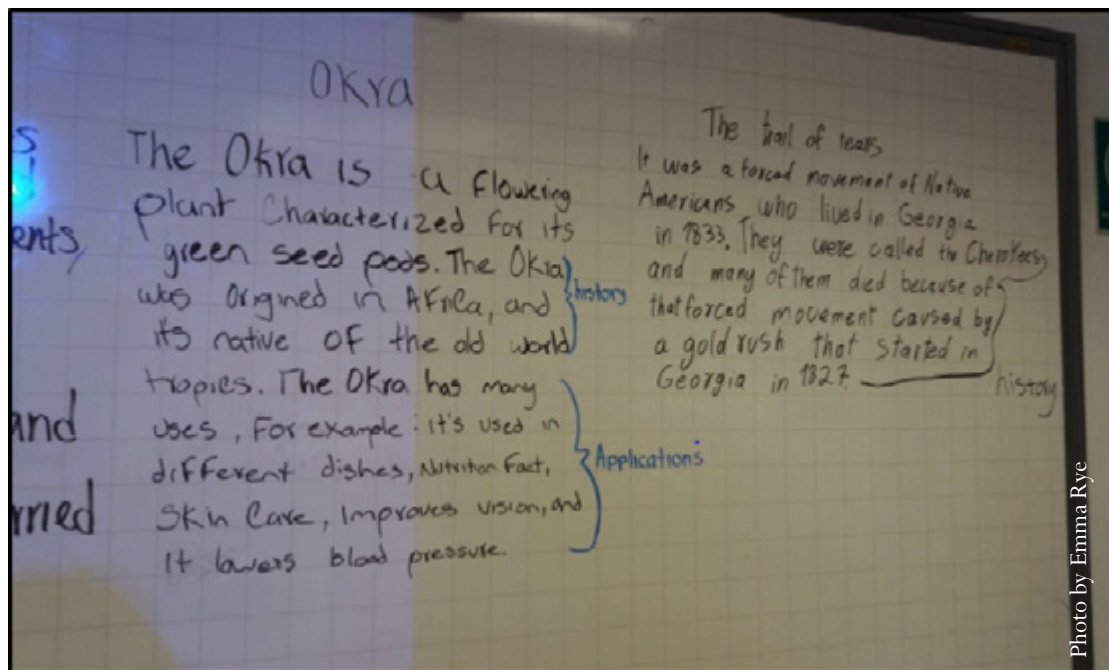 Okra
The Okra is a flowering
plant Characterized for its
green seed pods. The Okra
was Origined in Africa, and
its native of the old world
tropics. The Okra has many
uses, For example: it's used in
different dishes, Nutrition Fact,
Skin Care, Improves vision, and
It lowers blood pressure.
history
Applications
The trail of tears
It was a forced movement of Native
Americans who lived in Georgia
in 1833. They were called the Cherokees
and many of them died because of
that forced movement caused by
a gold rush that started in
Georgia in 1827.
history
s
ents,
and
rned
Photo by Emma Rye